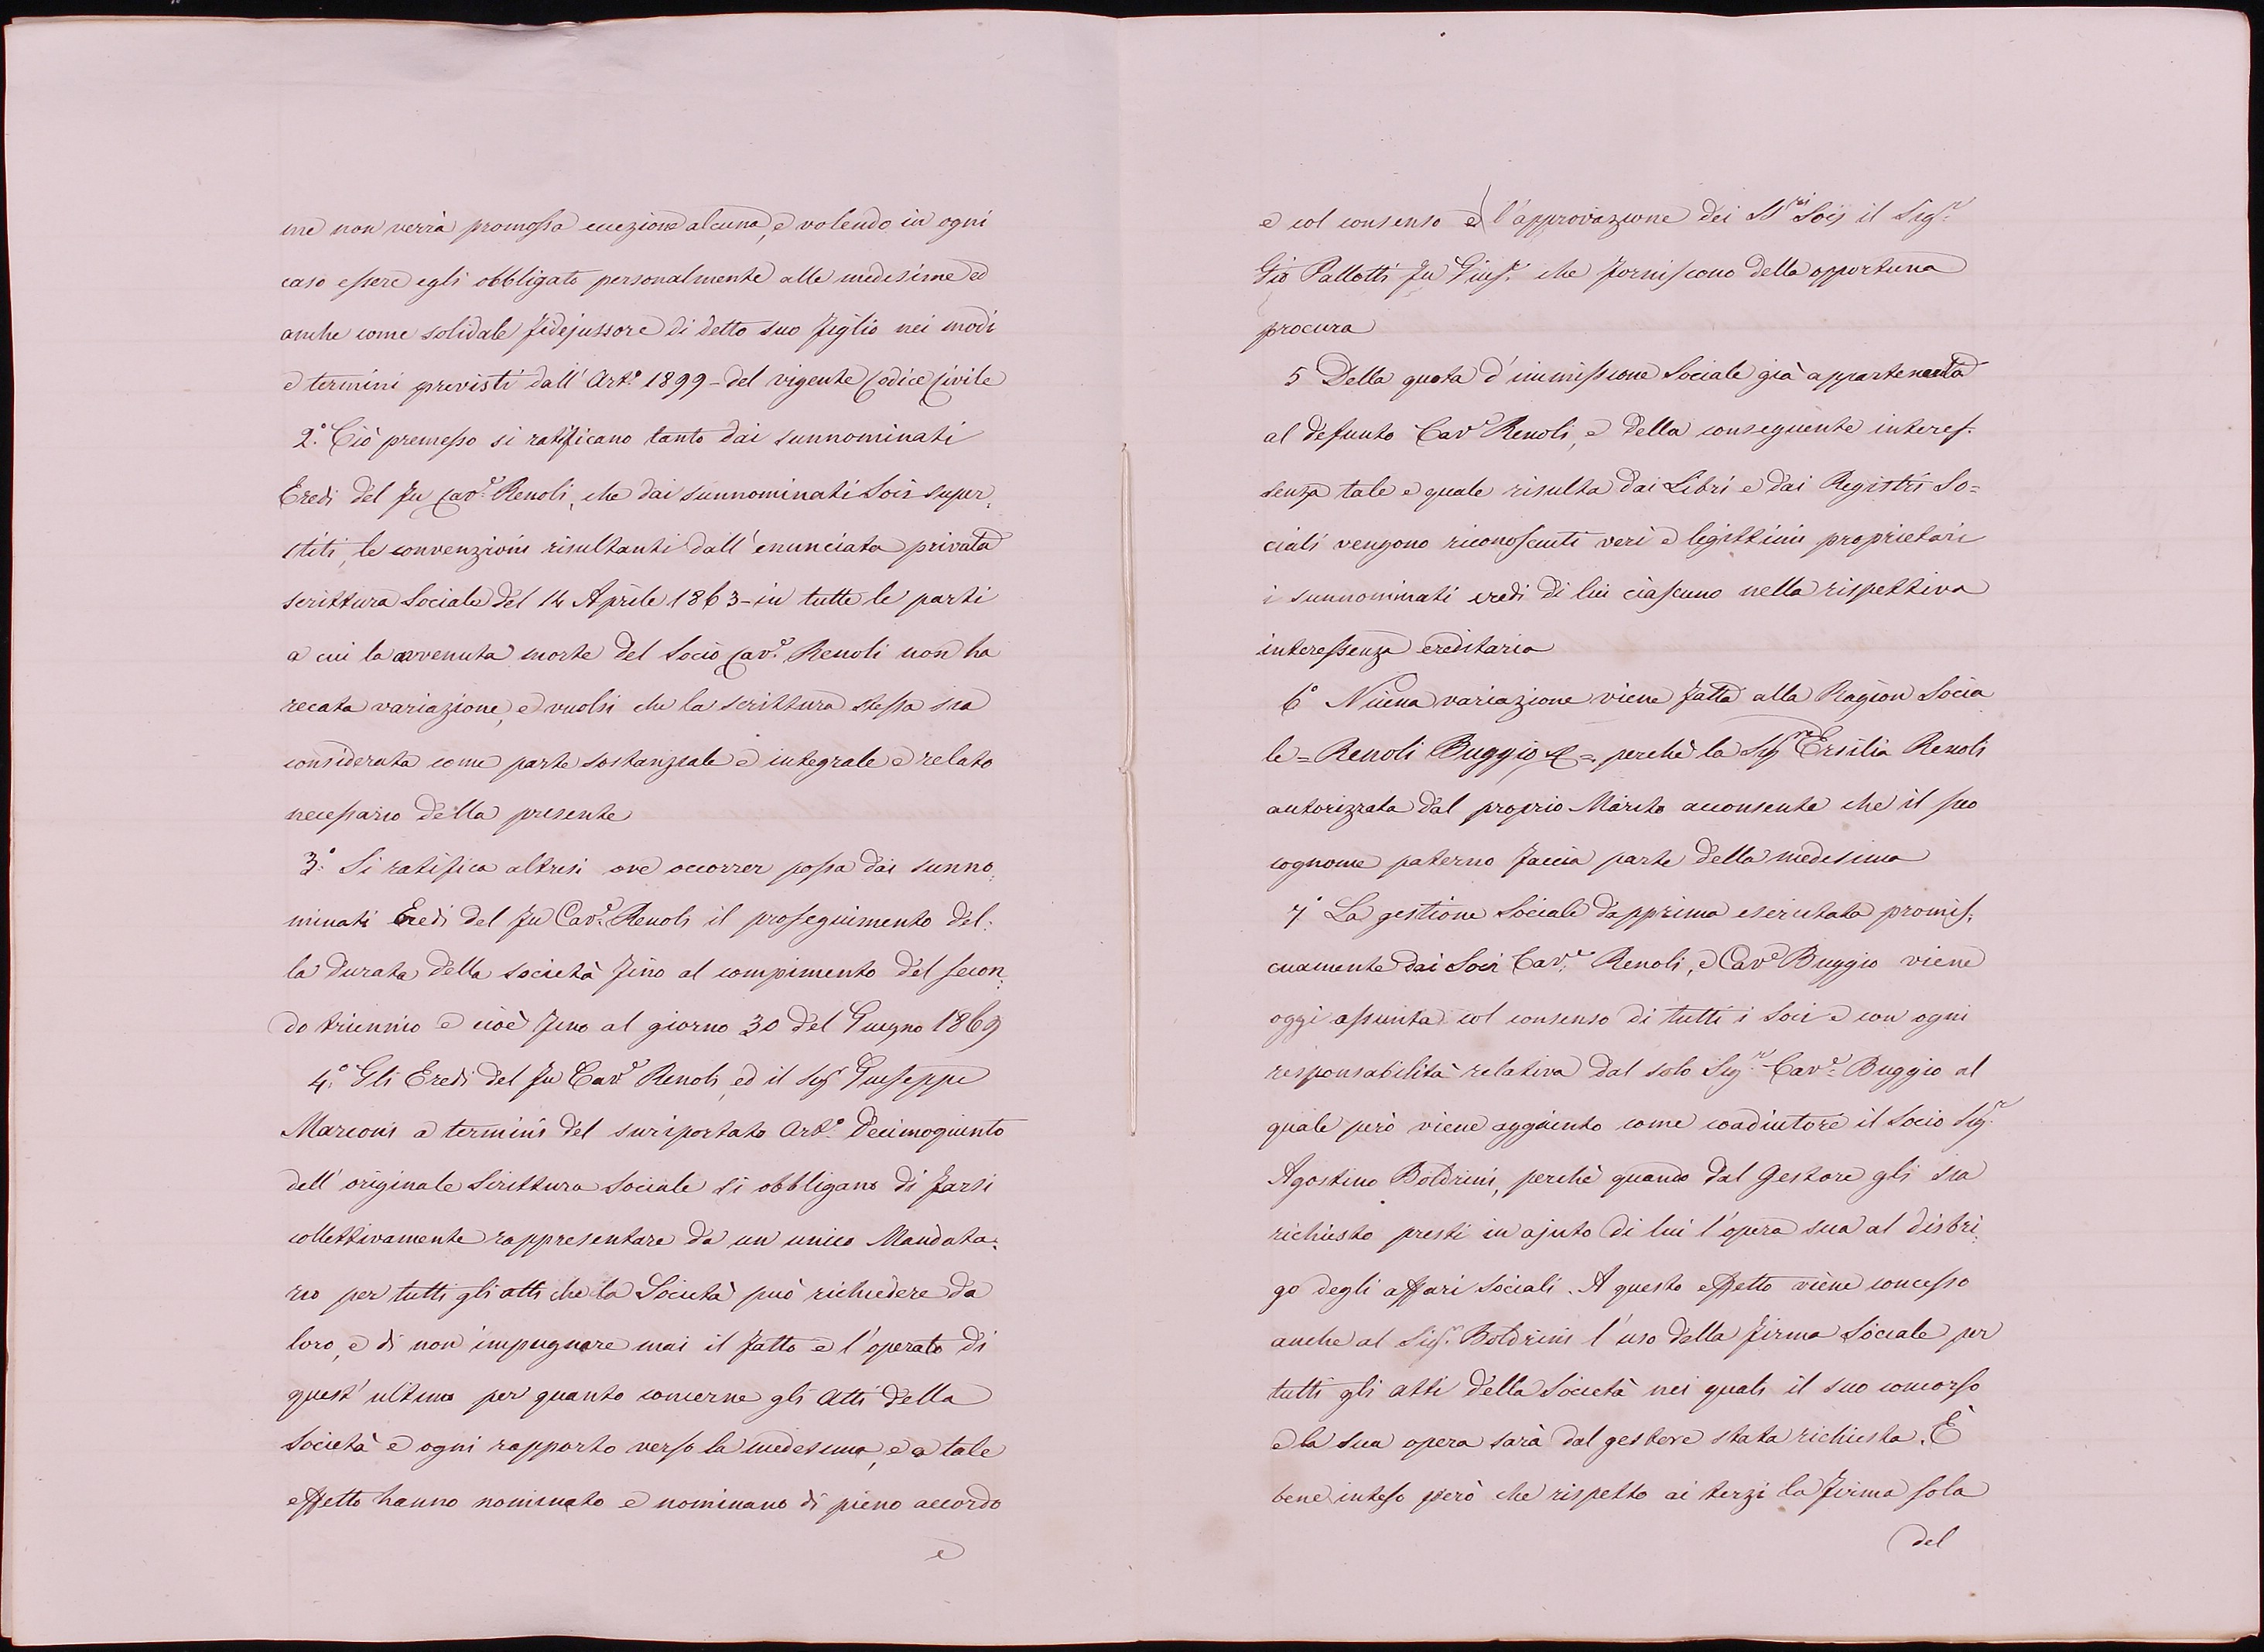 me non verrà promossa eccezione alcuna, e volendo in ogni
caso essere egli obbligato personalmente alle medesime ed
anche come solidale fidejussore di detto suo figlio nei modi
e termini previsti dall' Art.º 1899 - del vigente Codice Civile
2.º Ciò premesso si ratificano tanto dai sunnominati
Eredi del fu Cav.e Renoli, che dai sunnominati Socii super,
stiti, le convenzioni risultanti dall' enunciata privata
scrittura Sociale del 14 Aprile 1863 - in tutte le parti
a cui la avvenuta morte del Socio Cav.e Renoli non ha
recata variazione, e vuolsi che la scrittura stessa sia
considerata come parte sostanziale e integrale e relato
necessario della presente
3.º Si ratifica altresi ove occorrer possa dai sunno,
minati Eredi del fu Cav.e Renoli il proseguimento del:
la durata della società fino al compimento del secon,
do triennio e cioè fino al giorno 30 del Giugno 1869
4.º Gli Eredi del fu Cav.e Renoli, ed il Sig.r Giuseppe
Marconi a termini del suriportato Art.º Decimoquinto
dell' originale Scrittura Sociale si obbligano di farsi
collettivamente rappresentare da un unico Mandata:
rio per tutti gli atti che la Società può richiedere da
loro, e di non impugnare mai il fatto e l' operato di
quest' ultimo per quanto concerne gli Atti della
Società e ogni rapporto verso la medesima, e a tale
effetto hanno nominato e nominano di pieno accordo
e
e col consenso e l' approvazione dei SS.ri Socij il Sig.r
Gio Pallotti fu Gius.e che forniscono della opportuna
procura
5 Della quota d' immissione Sociale già appartenenta
al defunto Cav.e Renoli, e della conseguente interes:
senza tale e quale risulta dai Libri e dai Registri So=
ciali vengono riconosciuti veri e legittimi proprietari
i sunnominati eredi di lui ciascuno nella rispettiva
interessenza ereditaria
6º Niuna variazione viene fatta alla Ragion Socia
le = Renoli Buggio &C = perchè la Sig.ra Ersilia Renoli
autorizzata dal proprio Marito acconsente che il suo
cognome paterno faccia parte della medesima
7º La gestione Sociale dapprima esercitata promis,
cuamente dai Socii Cav.e Renoli, e Cav.e Buggio viene
oggi assunta col consenso di tutti i Socii e con ogni
responsabilità relativa dal solo Sig.r Cav.e Buggio al
quale però viene aggiunto come coadiutore il Socio Sig.r
Agostino Boldrini, perchè quando dal Gestore gli sia
richiesto presti in ajuto di lui l' opera sua al disbri,
go degli affari sociali. A questo effetto viene concesso
anche al Sig.r Boldrini l' uso della firma Sociale per
tutti gli atti della Società nei quali il suo concorso
e la sua opera sarà dal gestore stata richiesta. È
bene inteso però che rispetto ai terzi la firma sola
del